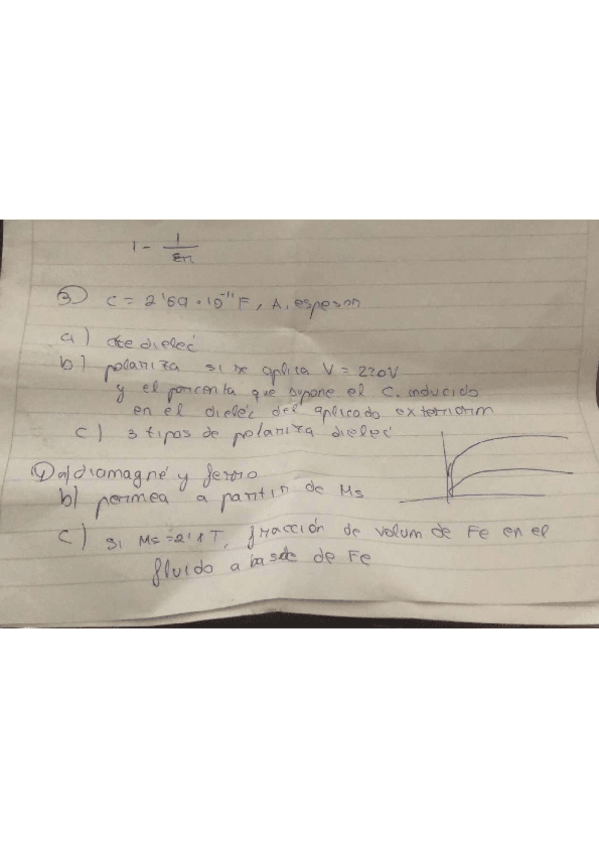 1 - 1/εr
③ C = 2'69 · 10⁻¹¹ F, A, espesor
a) cte dieléc
b) polariza si se aplica V = 220V
y el porcenta que supone el C. inducido
en el dieléc del aplicado exteriorm
c) 3 tipos de polariza dieléc
④ a) diamagné y ferro
b) permea a partir de Ms
c) si Ms = 2'1 T, fracción de volum de Fe en el
fluido a base de Fe